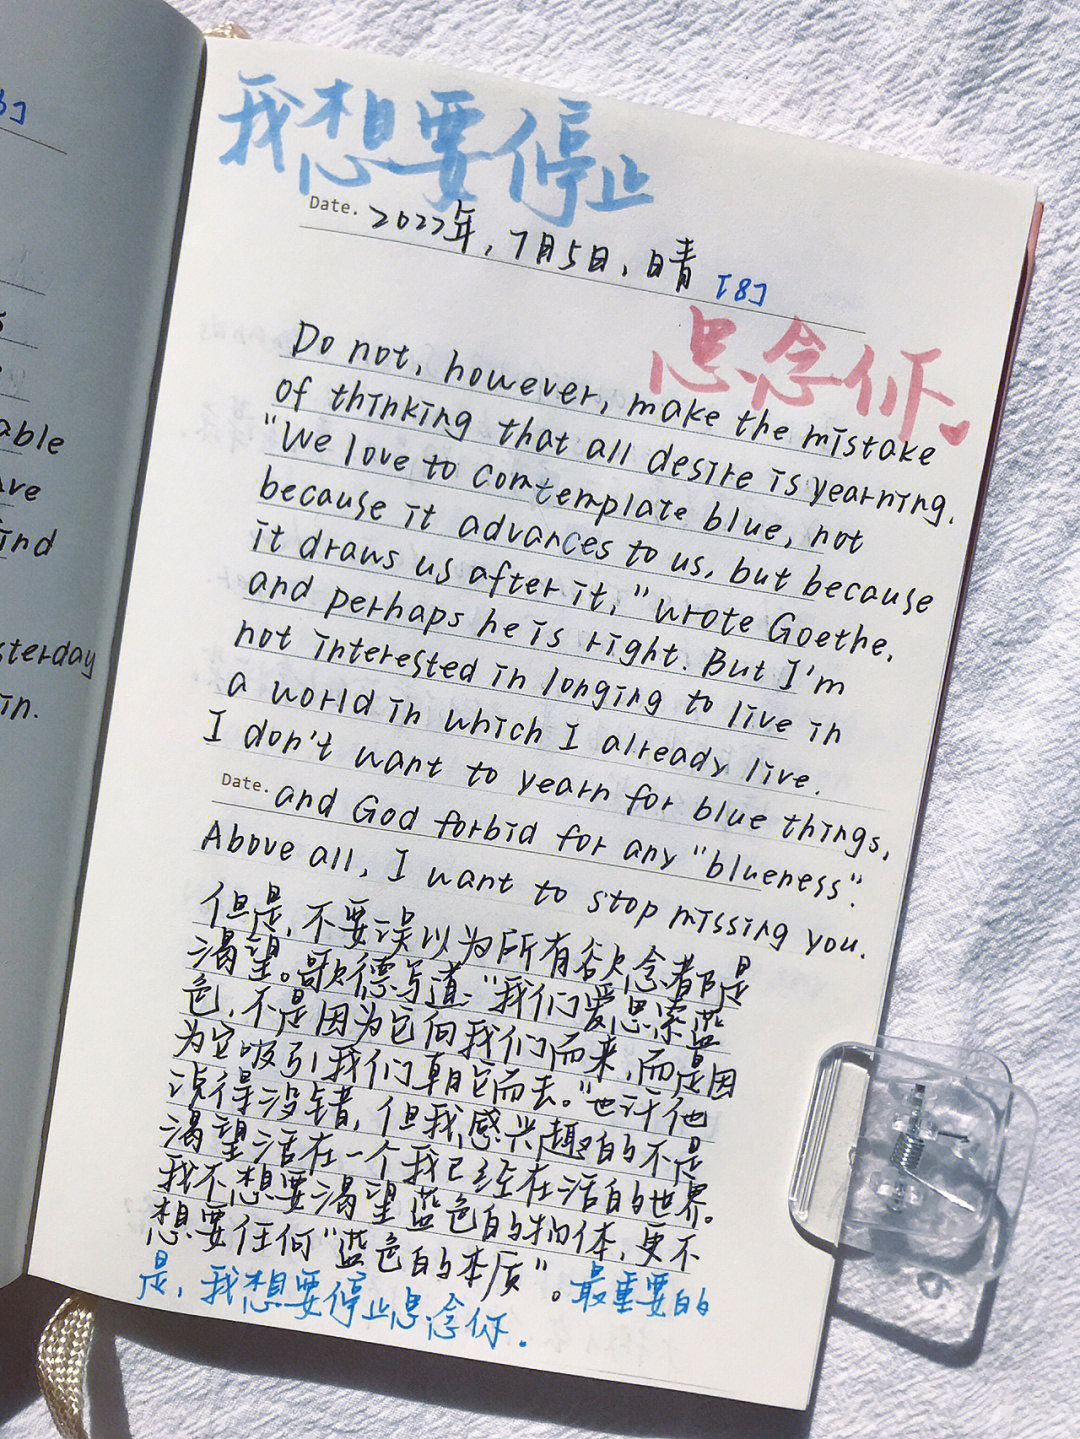 3]
able
ve
ind
sterday
in.
我想要停止
Date. 2022年，7月5日，晴 [8]
思念你。
Do not, however, make the mistake
of thinking that all desire is yearning.
"We love to comtemplate blue, not
because it advances to us, but because
it draws us after it," wrote Goethe,
and perhaps he is right. But I'm
not interested in longing to live in
a world in which I already live.
I don't want to yearn for blue things,
Date. and God forbid for any "blueness".
Above all, I want to stop missing you.
但是，不要误以为所有欲念都是
渴望。歌德写道："我们爱思索蓝
色，不是因为它向我们而来，而是因
为它吸引我们朝它而去。"也许他
说得没错，但我感兴趣的不是
渴望活在一个我已经在活的世界。
我不想要渴望蓝色的物体，更不
想要任何"蓝色的本质"。最重要的
是，我想要停止思念你.